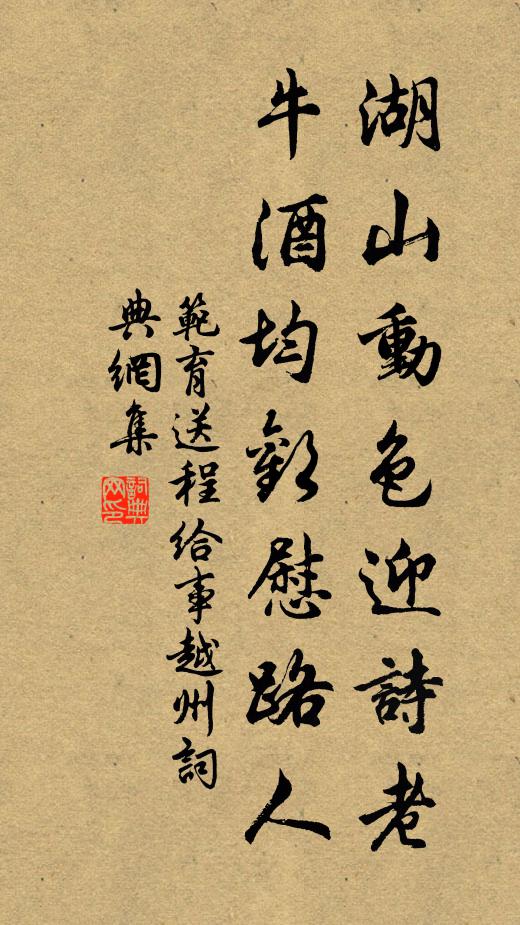 湖山動色迎詩老
牛酒均歡慰路人
範育送程給事越州詞
典網集
詞典网印